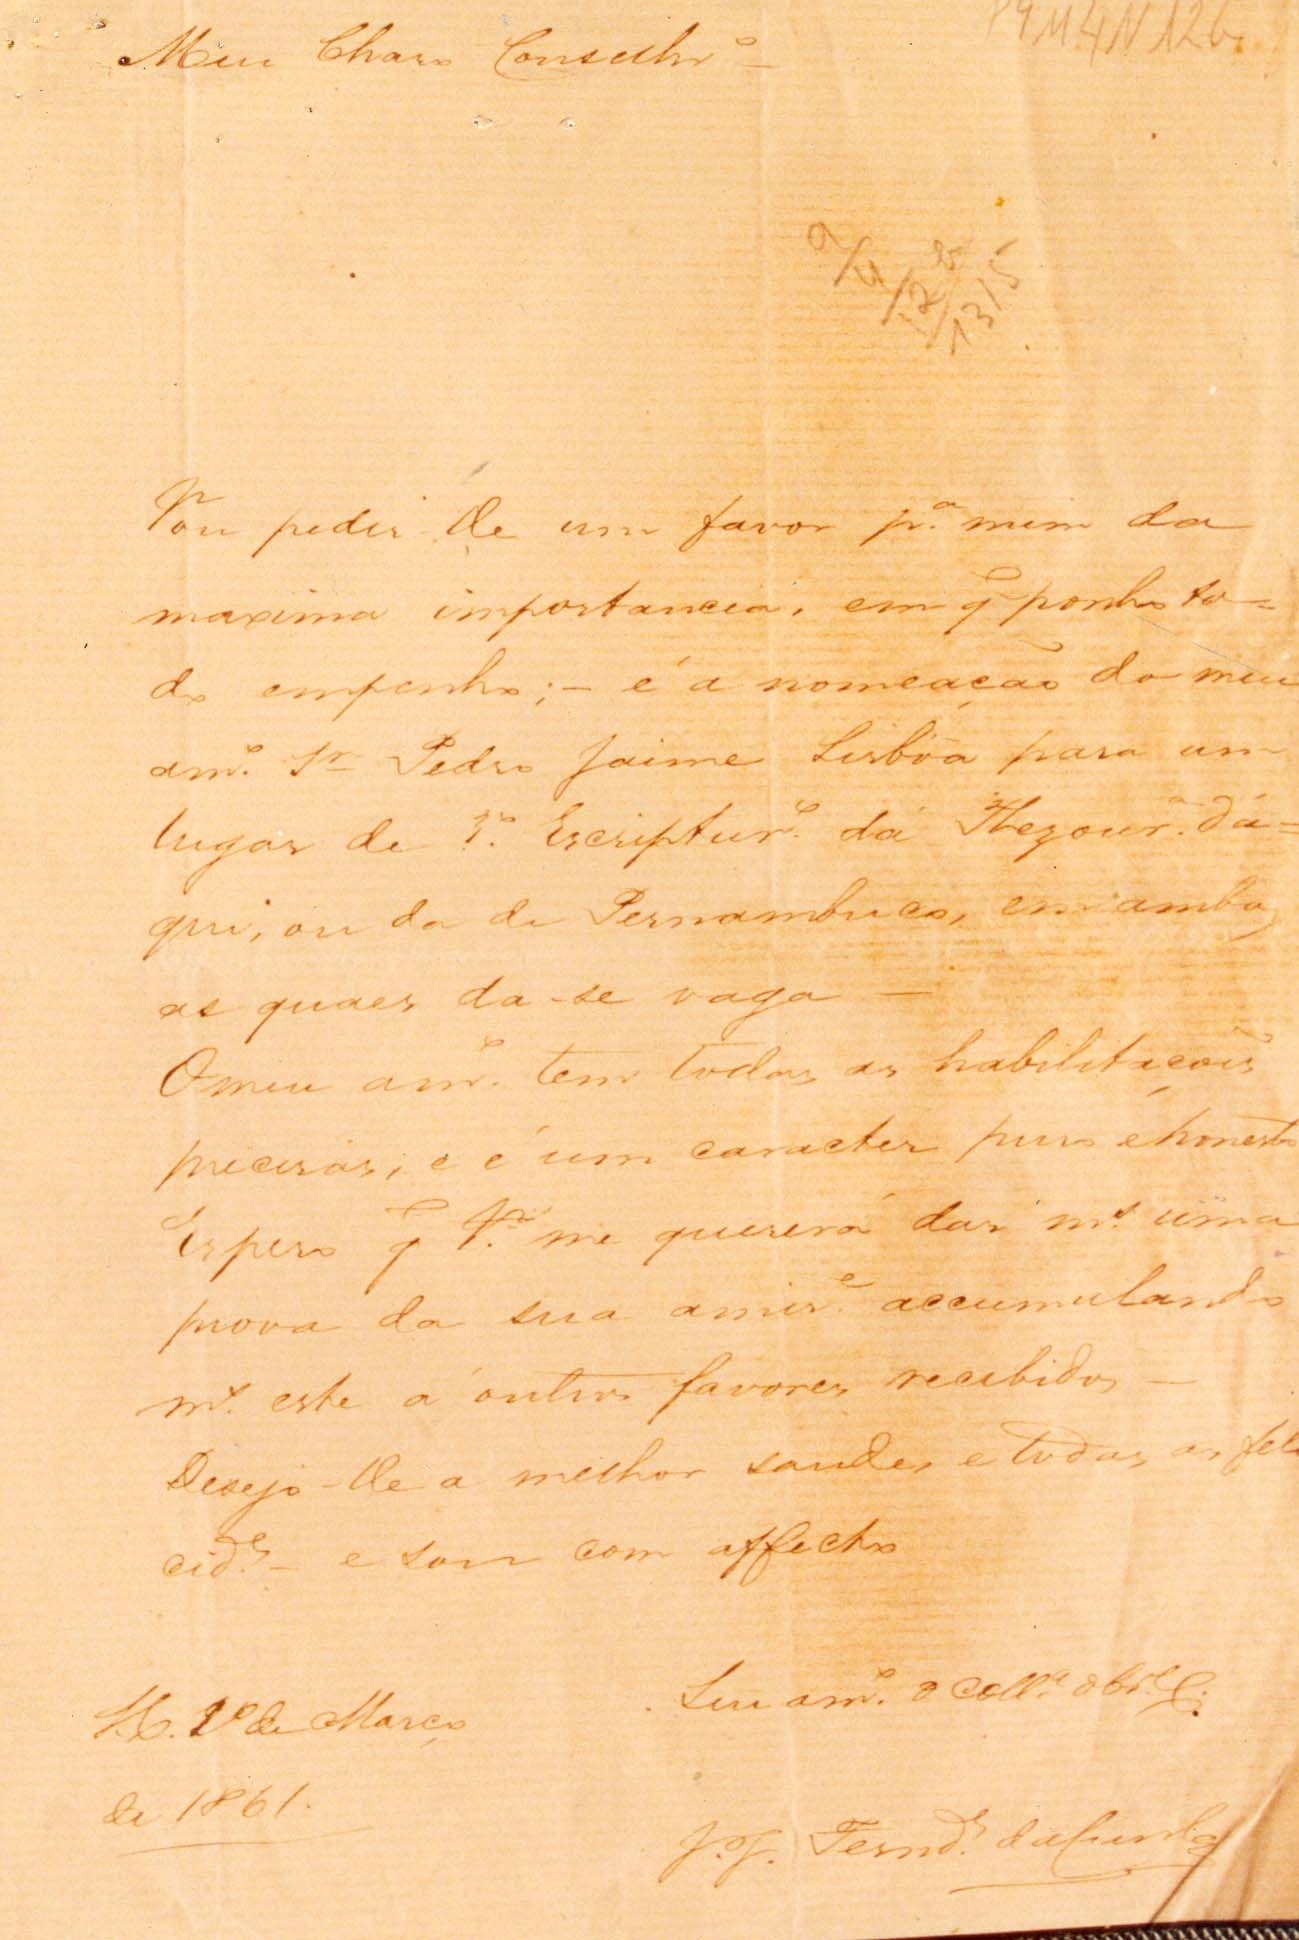 P4 M.4 N 126
Meu Charo Conselhrº
Vou pedir-lhe um favor p.ª mim da
maxima importancia, em q̃ ponho to=
do empenho; – é a nomeação do meu
am.º Sr Pedro Jaime Lisbôa para um
lugar de Escriptur.º dá Thezour.ª dá=
qui, ou da de Pernambuco, em ambas
as quaes da-se vaga –
O meu am.º tem todas as habilitações
precisas, e é um caracter puro é honesto
Espero q̃ V. me quererá dar m.s uma
prova da sua amis.e accumulando
m.s este a outros favores recebidos –
Desejo-lhe a melhor saude, e todas as feli
cid.es – e sou com affecto
Seu am.º e coll.ª obr.º
de Março
de 1861.
J. J. Fernd.es da Cunha